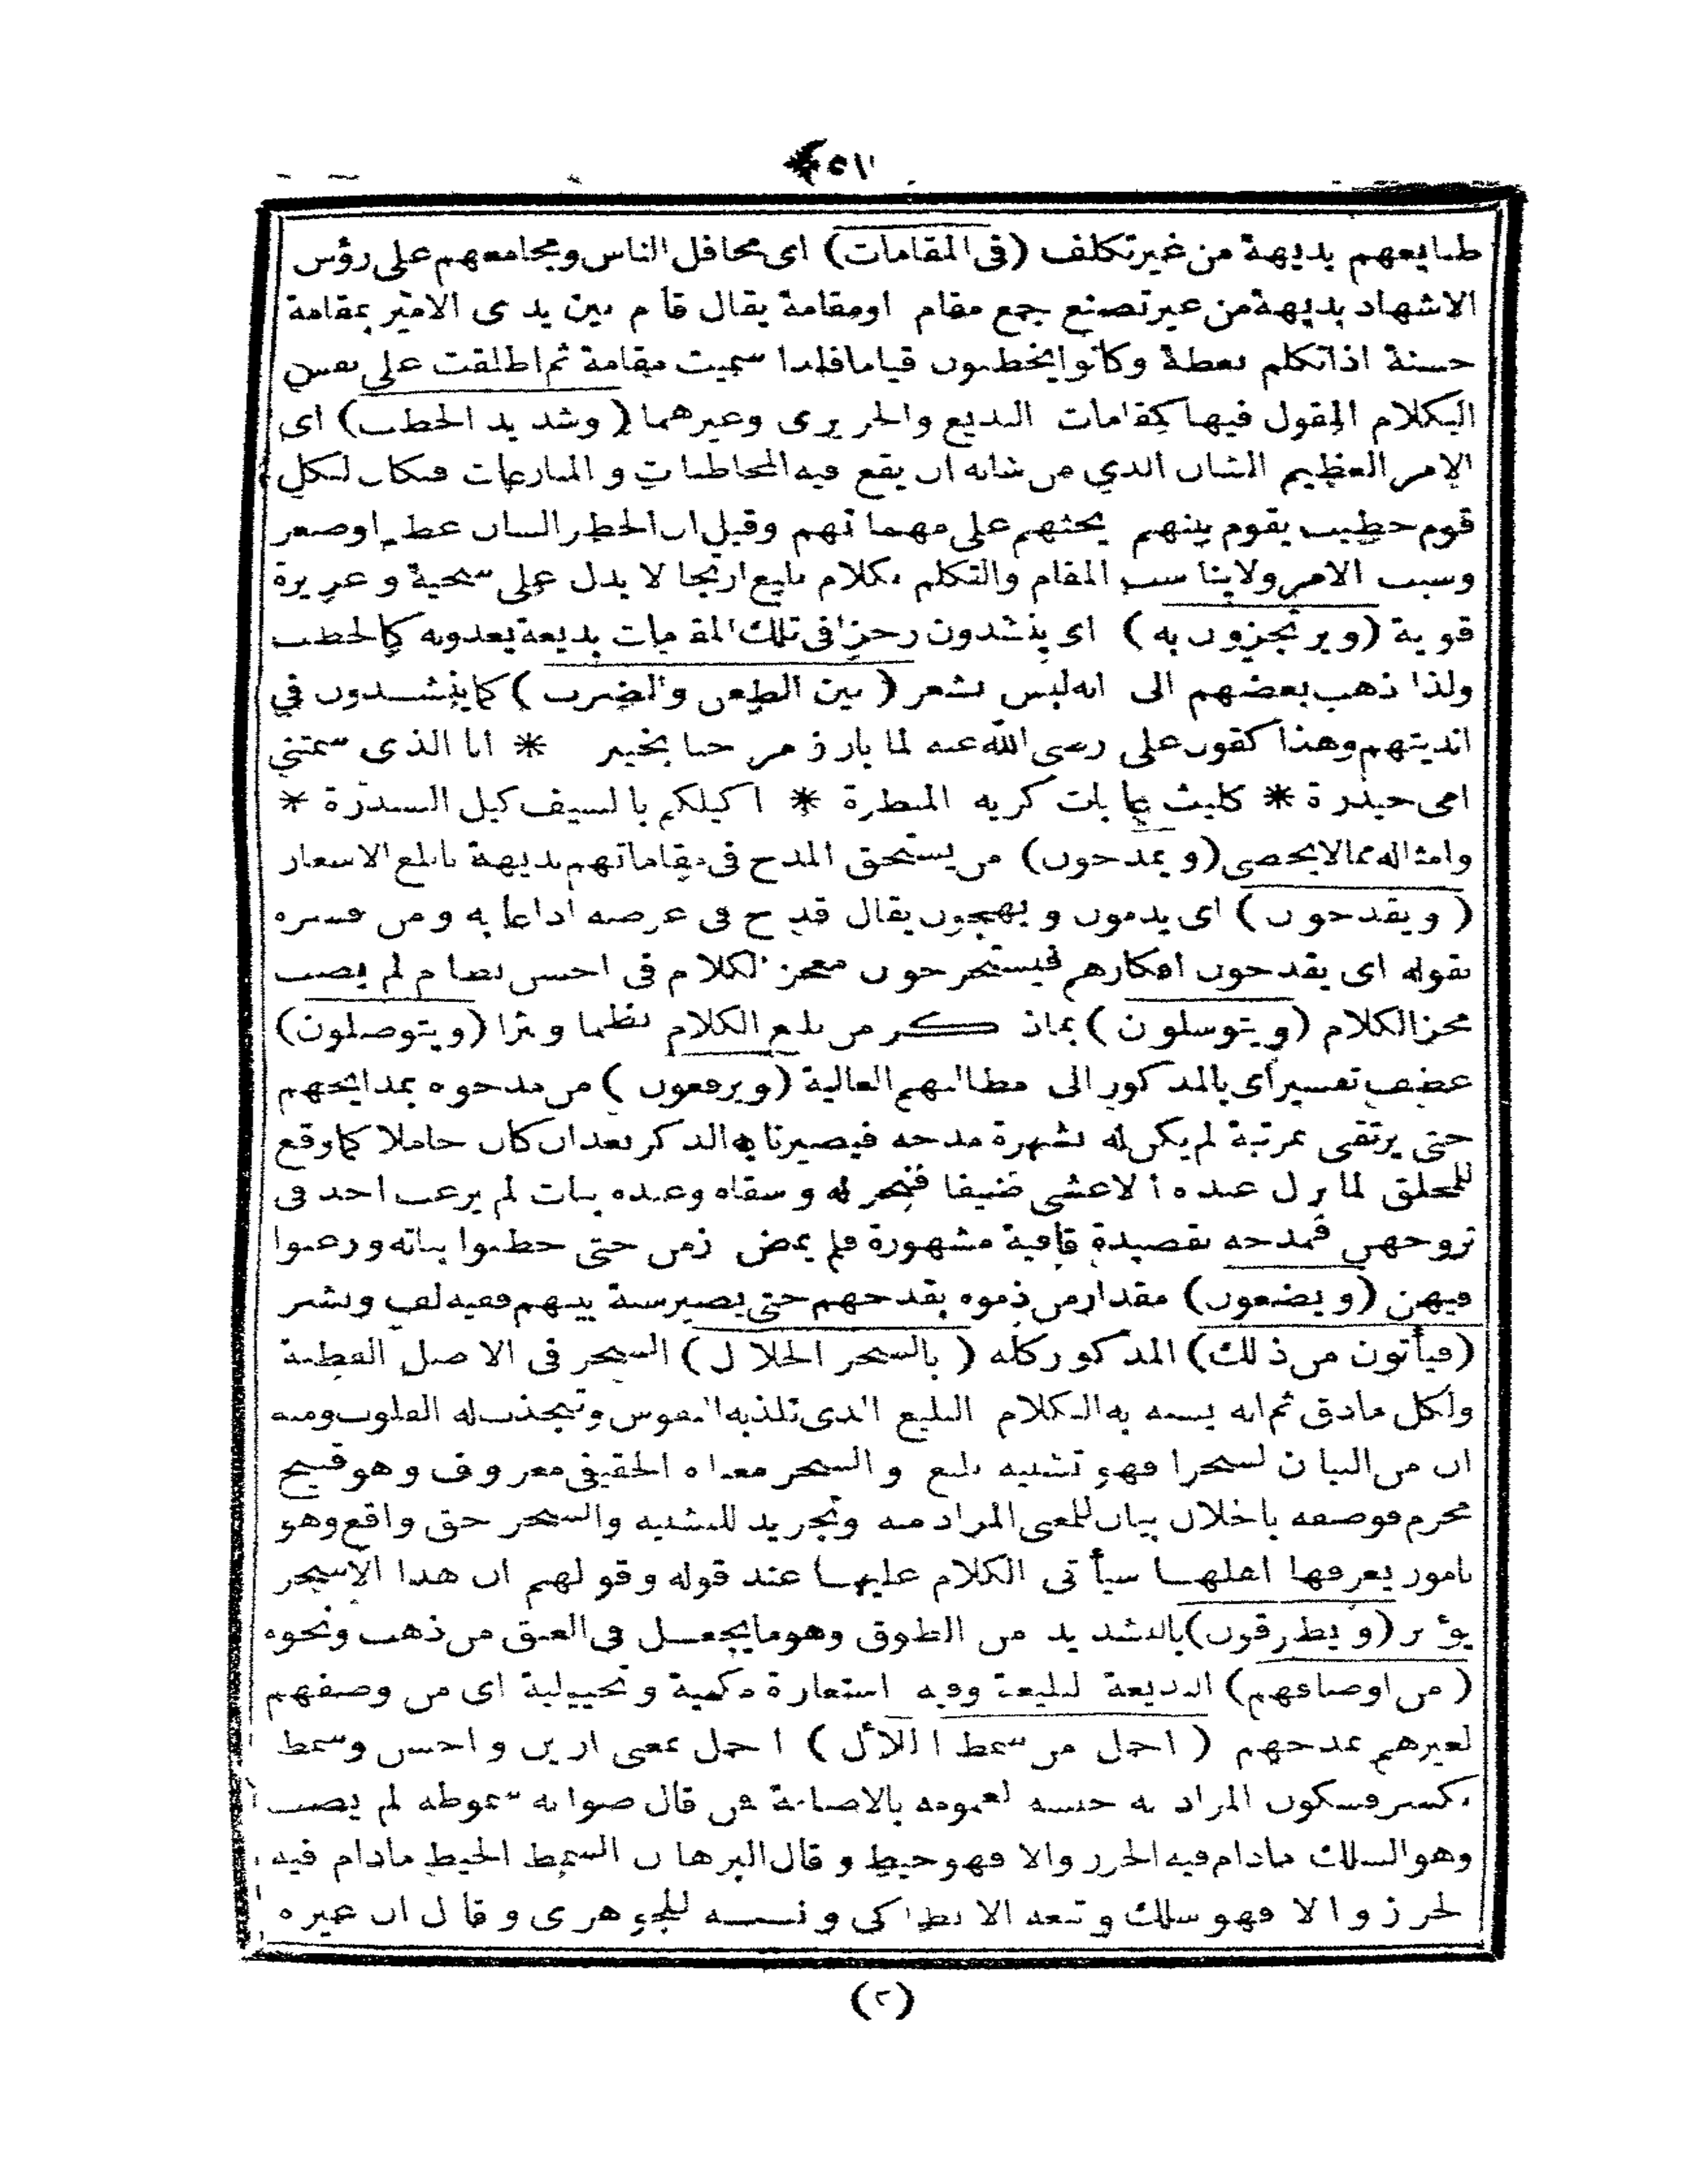 طبايعهم بديهة من غير تكلف (فى المقامات) اى محافل الناس ومجامعهم على رؤس
الاشهاد بديهة من غير تصنع جمع مقام او مقامة يقال قام بين يدى الامير بمقامة
حسنة اذا تكلم بعظة وكانوا يخطبون قياما فلذا سميت مقامة ثم اطلقت على نفس
الكلام المقول فيها كمقامات البديع والحريرى وغيرهما (وشديد الخطب) اى
الامر العظيم الشان الذي من شانه ان يقع فيه المخاطبات والمنازعات فكان لكل
قوم خطيب يقوم بينهم يحثهم على مهماتهم وقيل ان الخطر الشان عظم اوصغر
وسبب الامر ولا يناسب المقام والتكلم بكلام بليغ ارتجالا يدل على سجية وغريزة
قوية (ويرتجزون به) اى ينشدون رجزا فى تلك المقامات بديعة يعدونه كالخطب
ولذا ذهب بعضهم الى انه ليس بشعر (بين الطعن والضرب) كما ينشدون في
انديتهم وهذا كقول على رضى الله عنه لما بارز مرحبا بخيبر * انا الذى سمتني
امى حيدرة * كليث غابات كريه المنظرة * اكيلكم بالسيف كيل السندرة *
وامثاله مما لا يحصى (ويمدحون) من يستحق المدح فى مقاماتهم بديهة بابلغ الاشعار
(ويقدحون) اى يذمون ويهجون يقال قدح فى عرضه اذا عابه ومن فسره
بقوله اى يقدحون افكارهم فيستخرجون معجز الكلام فى احسن نظام لم يصب
محز الكلام (ويتوسلون) بما ذكر من بليغ الكلام نظما ونثرا (ويتوصلون)
عطف تفسير أى بالمذكور الى مطالبهم العالية (ويرفعون) من مدحوه بمدايحهم
حتى يرتقى بمرتبة لم يكن له بشهرة مدحه فيصير نابه الذكر بعد ان كان خاملا كما وقع
للمحلق لما نزل عنده الاعشى ضيفا فنحر له وسقاه وعنده بنات لم يرغب احد فى
تزوجهن فمدحه بقصيدة قافية مشهورة فلم يمض زمن حتى خطبوا بناته ورغبوا
فيهن (ويضعون) مقدار من ذموه بقدحهم حتى يصير سبة بينهم ففيه لف ونشر
(فيأتون من ذلك) المذكور كله (بالسحر الحلال) السحر فى الاصل الفطنة
ولكل مادق ثم انه يسمى به الكلام البليغ الذى تلتذ به النفوس وتنجذب له القلوب ومنه
ان من البيان لسحرا فهو تشبيه بليغ والسحر معناه الحقيقي معروف وهو قبيح
محرم فوصفه باخلال بيان للمعنى المراد منه وتجريد للتشبيه والسحر حق واقع وهو
بامور يعرفها اهلها سيأتى الكلام عليها عند قوله وقولهم ان هذا الاسحر
يؤثر (ويطوقون) بالتشديد من الطوق وهو ما يجعل فى العنق من ذهب ونحوه
(من اوصافهم) البديعة البليغة وفيه استعارة مكنية وتخييلية اى من وصفهم
لغيرهم بمدحهم (اجمل من سمط اللأل) اجمل بمعنى ازين واحسن وسمط
بكسر فسكون المراد به جنسه لعمومه بالاضافة فمن قال صوابه سموطه لم يصب
وهو السلك مادام فيه الخرز والا فهو خيط وقال البرهان السمط الخيط مادام فيه
لخرز والا فهو سلك وتبعه الانطاكى ونسبه للجوهرى وقال ان غيره
(٢)